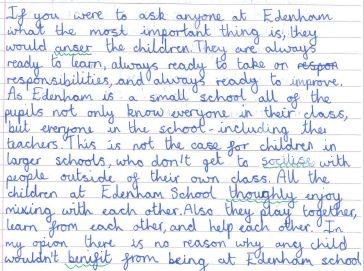 If you were to ask anyone at Edenham
what the most important thing is, they
would anser the children. They are always
ready to learn, always ready to take on respon
responsibilities, and always ready to improve.
As Edenham is a small school all of the
pupils not only know everyone in their class,
but everyone in the school - including the
teachers. This is not the case for children in
larger schools, who don't get to socilise with
people outside of their own class. All the
children at Edenham School thoughly enjoy
mixing with each other. Also they play together,
learn from each other, and help each other. In
my opion there is no reason why any child
wouldn't benifit from being at Edenham school